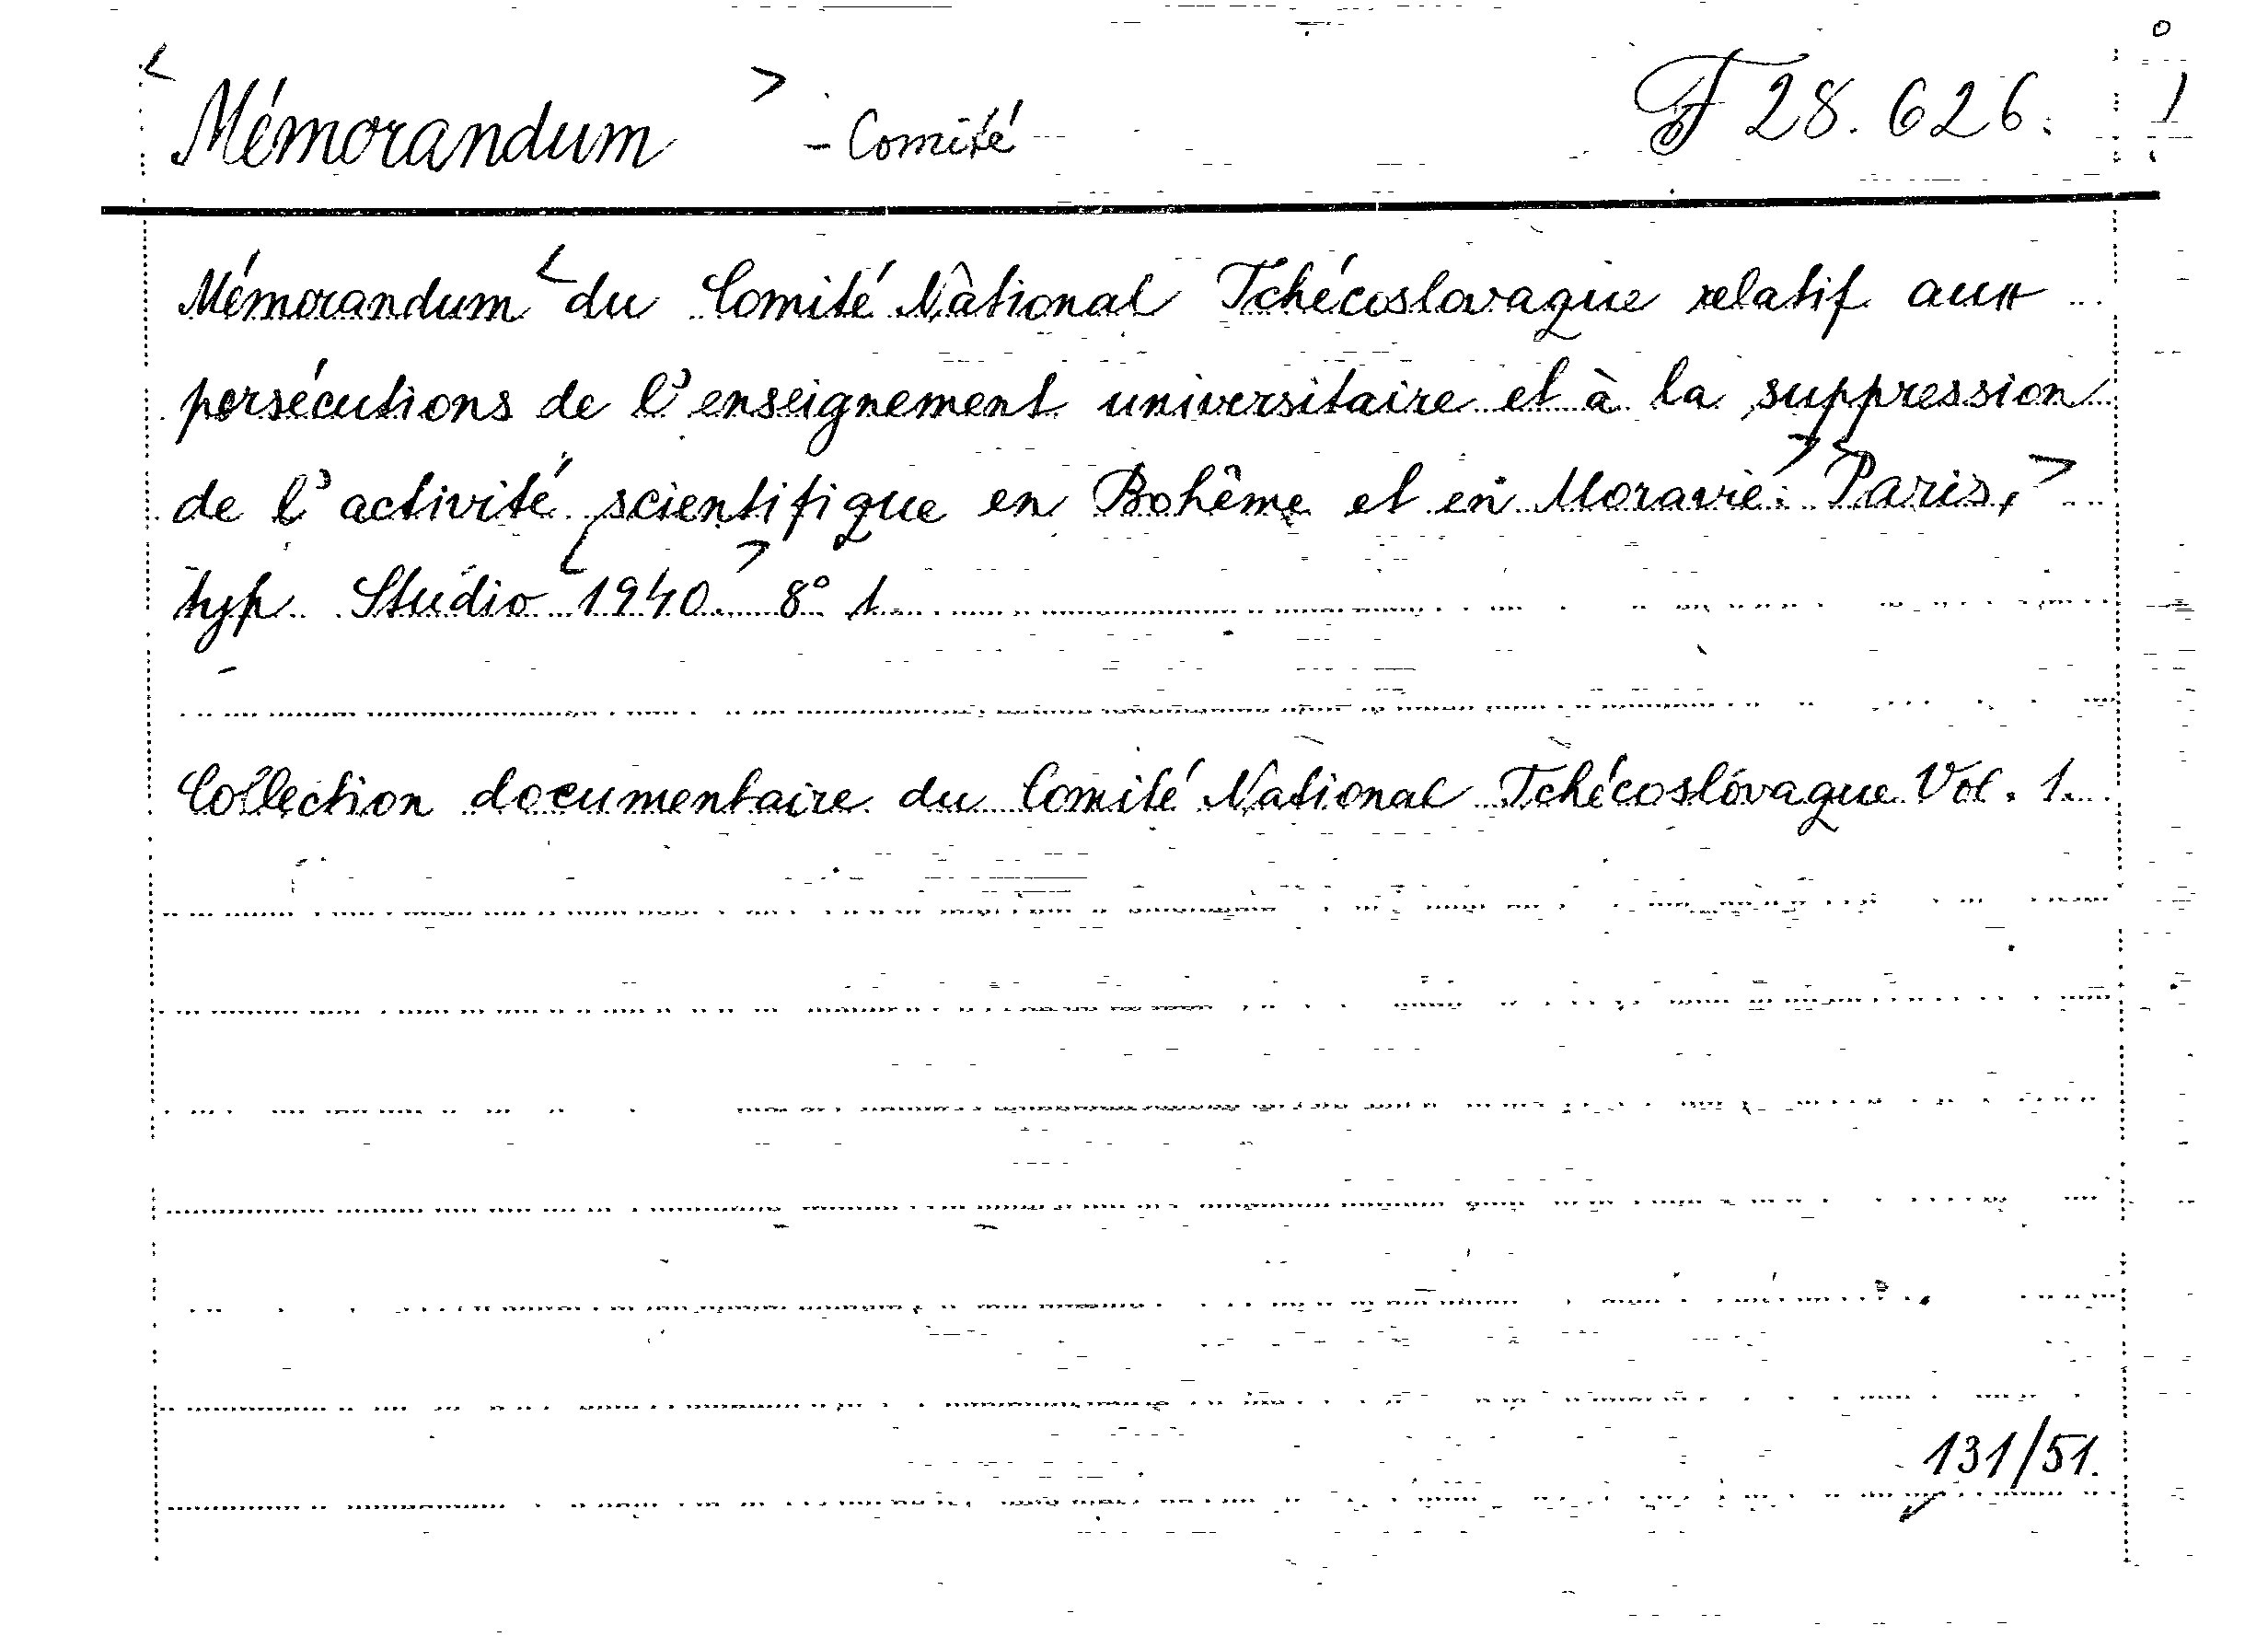 < Mémorandum > - Comité F 28.626.
Mémorandum < du Comité National Tchécoslovaque relatif aux
persécutions de l'enseignement universitaire et à la suppression
de l'activité scientifique en Bohême et en Moravie. > < Paris, >
typ. Studio < 1940. > 8° 1
Collection documentaire du Comité National Tchécoslovaque Vol. 1.
131/51.